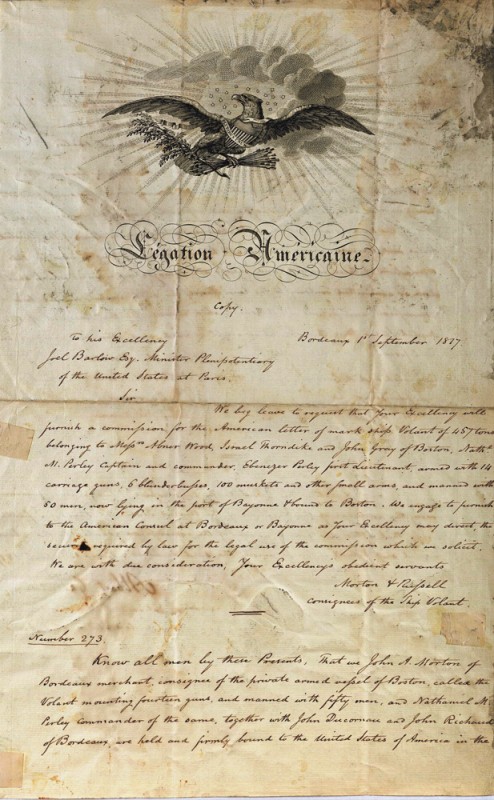 Légation Américaine.
Copy.
To his Excellency Bordeaux 1st September 1817
Joel Barlow Esq. Minister Plenipotentiary
of the United States at Paris.
Sir
We beg leave to request that Your Excellency will
furnish a commission for the American letter of mark ship Volant of 457 tons
belonging to Messrs Abner Wood, Israel Thorndike and John Gray of Boston, Nathl
M. Perley Captain and commander, Ebenezer Perley first Lieutenant, armed with 14
carriage guns, 6 blunderbusses, 100 muskets and other small arms, and manned with
50 men, now lying in the port of Bayonne & bound to Boston. We engage to furnish
to the American Consul at Bordeaux or Bayonne as Your Excellency may direct, the
required by law for the legal use of the commission which we solicit.
We are with due consideration, Your Excellency's obedient servants
Morton & Russell
consignees of the Ship Volant.
Number 273.
Know all men by these Presents, That we John A. Morton of
Bordeaux merchant, consignee of the private armed vessel of Boston, called the
Volant mounting fourteen guns, and manned with fifty men, and Nathaniel M.
Perley commander of the same, together with John and John Richard
of Bordeaux, are held and firmly bound to the United States of America in the